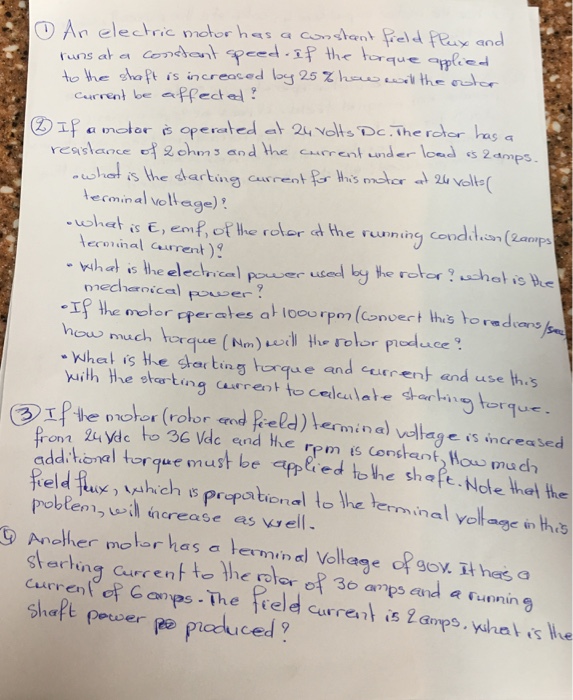 ① An electric motor has a constant field flux and
runs at a constant speed. If the torque applied
to the shaft is increased by 25% how will the rotor
current be affected?
② If a motor is operated at 24 volts Dc. The rotor has a
resistance of 2 ohms and the current under load is 2 amps.
• what is the starting current for this motor at 24 volts (
terminal voltage)?
• what is E, emf, of the rotor at the running condition (2 amps
terminal current)?
• what is the electrical power used by the rotor? what is the
mechanical power?
• If the motor operates at 1000 rpm (convert this to radians/sec
how much torque (Nm) will the rotor produce?
• What is the starting torque and current and use this
with the starting current to calculate starting torque.
③ If the motor (rotor and field) terminal voltage is increased
from 24 Vdc to 36 Vdc and the rpm is constant, How much
additional torque must be applied to the shaft. Note that the
field flux, which is propotional to the terminal voltage in this
problem, will increase as well.
④ Another motor has a terminal Voltage of 90V. It has a
starting current to the rotor of 30 amps and a running
current of 6 amps. The field current is 2 amps. what is the
shaft power produced?